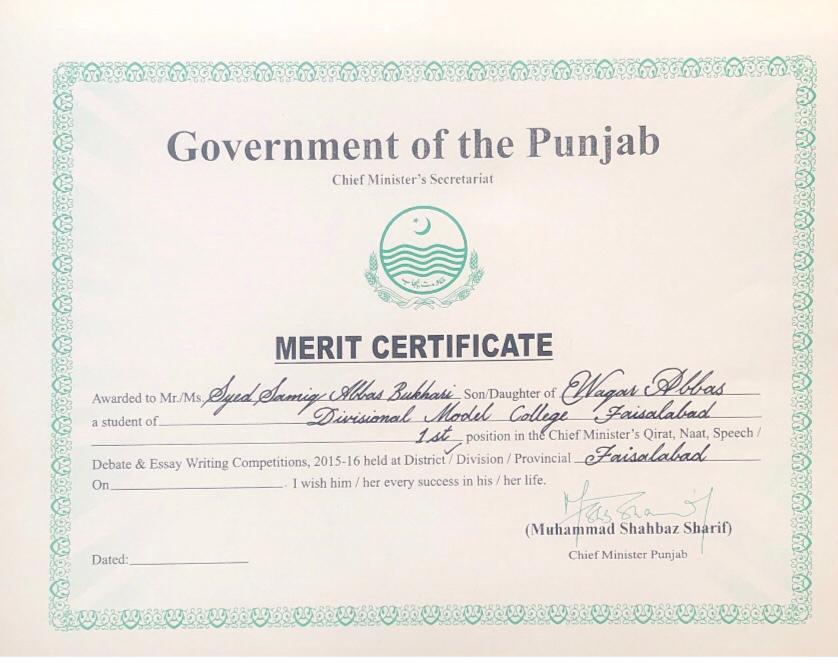 Government of the Punjab
Chief Minister's Secretariat
حکومت پنجاب
MERIT CERTIFICATE
Awarded to Mr./Ms. Syed Samiq Abbas Bukhari Son/Daughter of Waqar Abbas
a student of Divisional Model College Faisalabad
1st position in the Chief Minister's Qirat, Naat, Speech /
Debate & Essay Writing Competitions, 2015-16 held at District / Division / Provincial Faisalabad
On . I wish him / her every success in his / her life.
(Muhammad Shahbaz Sharif)
Chief Minister Punjab
Dated: